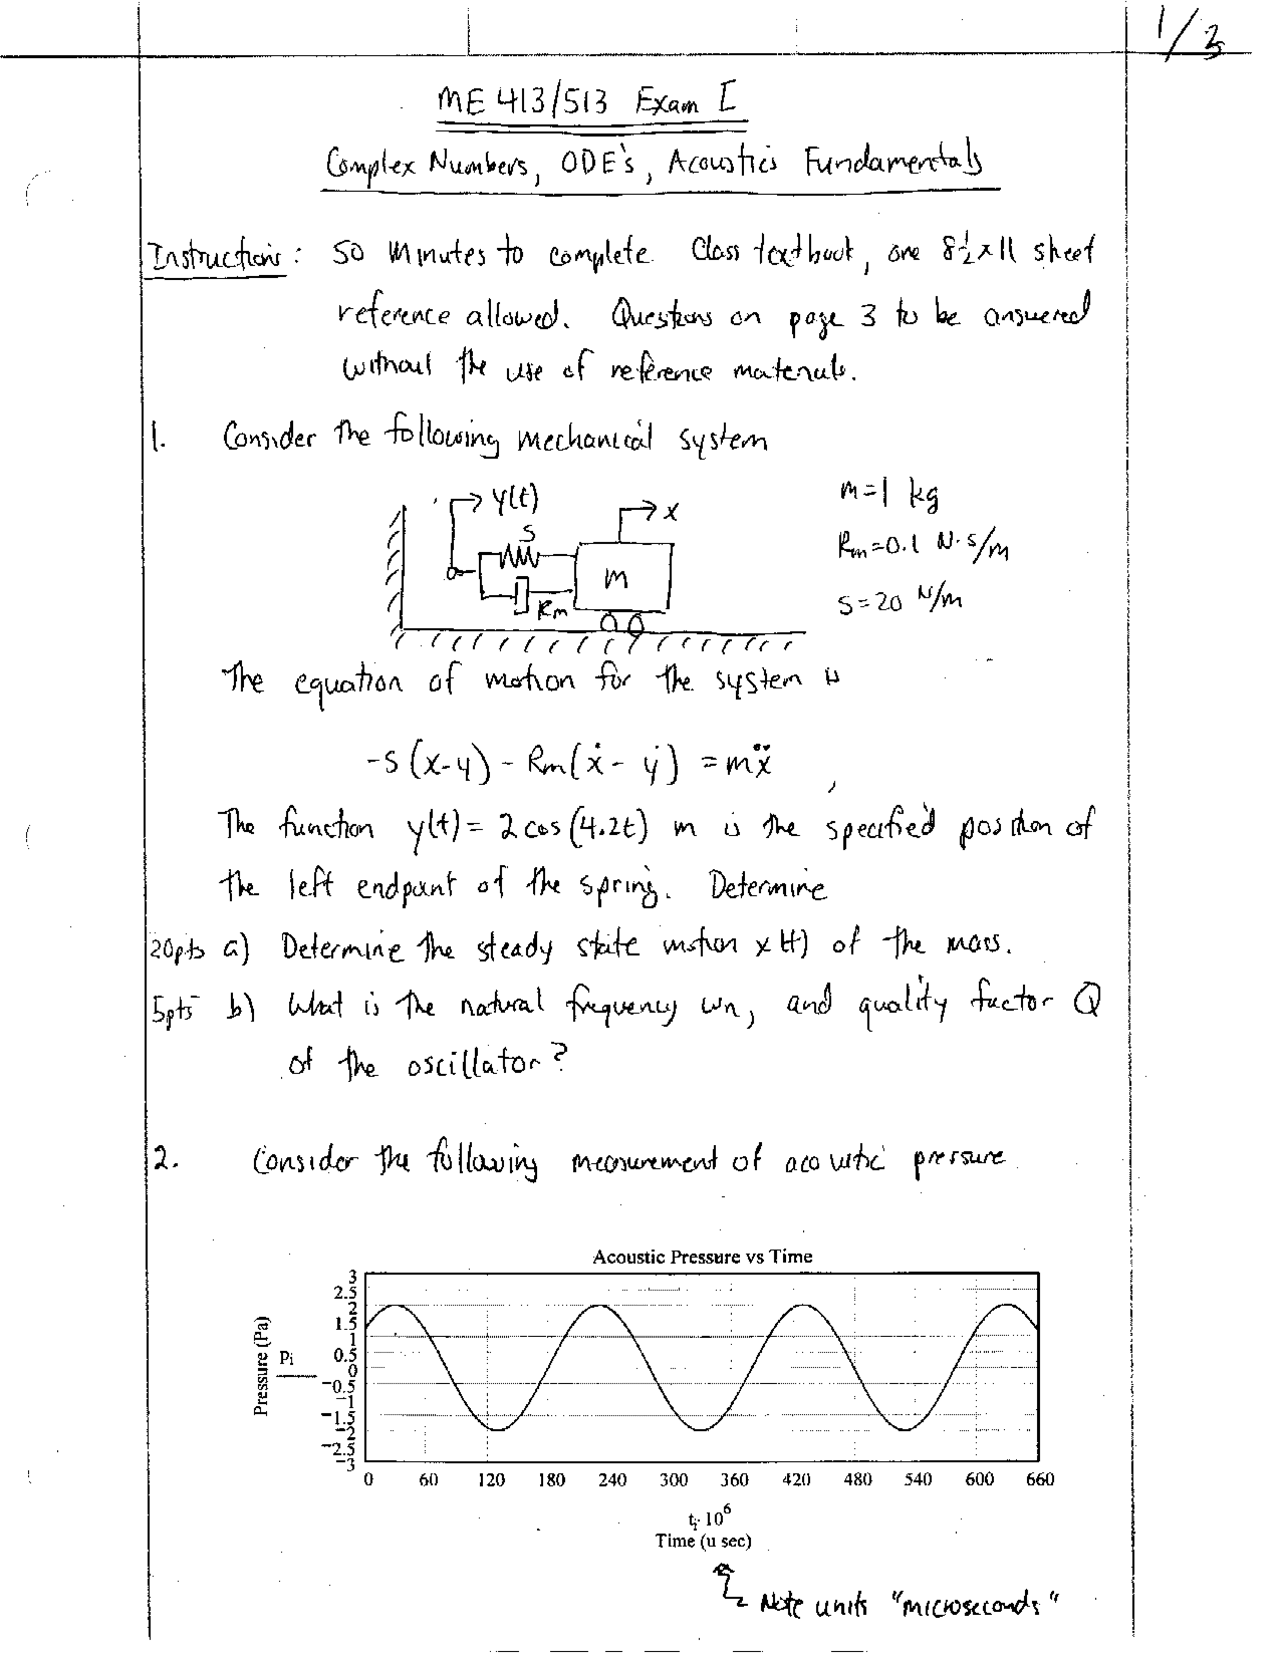 1/3
ME 413/513 Exam I
Complex Numbers, ODE's, Acoustics Fundamentals
Instructions: 50 minutes to complete. Class textbook, one 8½x11 sheet
reference allowed. Questions on page 3 to be answered
without the use of reference materials.
1. Consider the following mechanical system
y(t)
x
S
m
Rm
m=1 kg
Rm=0.1 N·s/m
S=20 N/m
The equation of motion for the system is
-S(x-y) - Rm(ẋ - ẏ) = mẍ,
The function y(t) = 2cos(4.2t) m is the specified position of
the left endpoint of the spring. Determine
20pts a) Determine the steady state motion x(t) of the mass.
5pts b) What is the natural frequency wn, and quality factor Q
of the oscillator?
2. Consider the following measurement of acoustic pressure
Acoustic Pressure vs Time
Pressure (Pa)
Pi
3
2.5
2
1.5
1
0.5
0
−0.5
−1
−1.5
−2
−2.5
−3
0 60 120 180 240 300 360 420 480 540 600 660
ti·10⁶
Time (u sec)
Note units "microseconds"